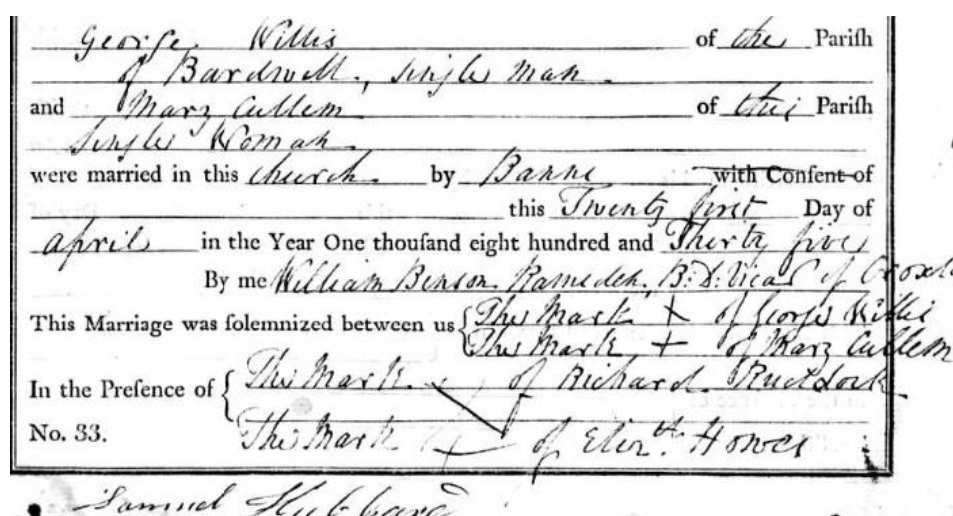 George Willis of the Parish
of Bardwell, single Man
and Mary Cullem of this Parish
single Woman
were married in this church by Banns with Consent of
this Twenty first Day of
April in the Year One thousand eight hundred and Thirty five
By me William Benson Ramsden, B:D: Vicar of Croxt
This Marriage was solemnized between us { The Mark X of George Willis
The Mark + of Mary Cullem
In the Presence of { The Mark X of Richard Ruddock
No. 33. The Mark X of Elizth. Howes
Samuel Hubbard